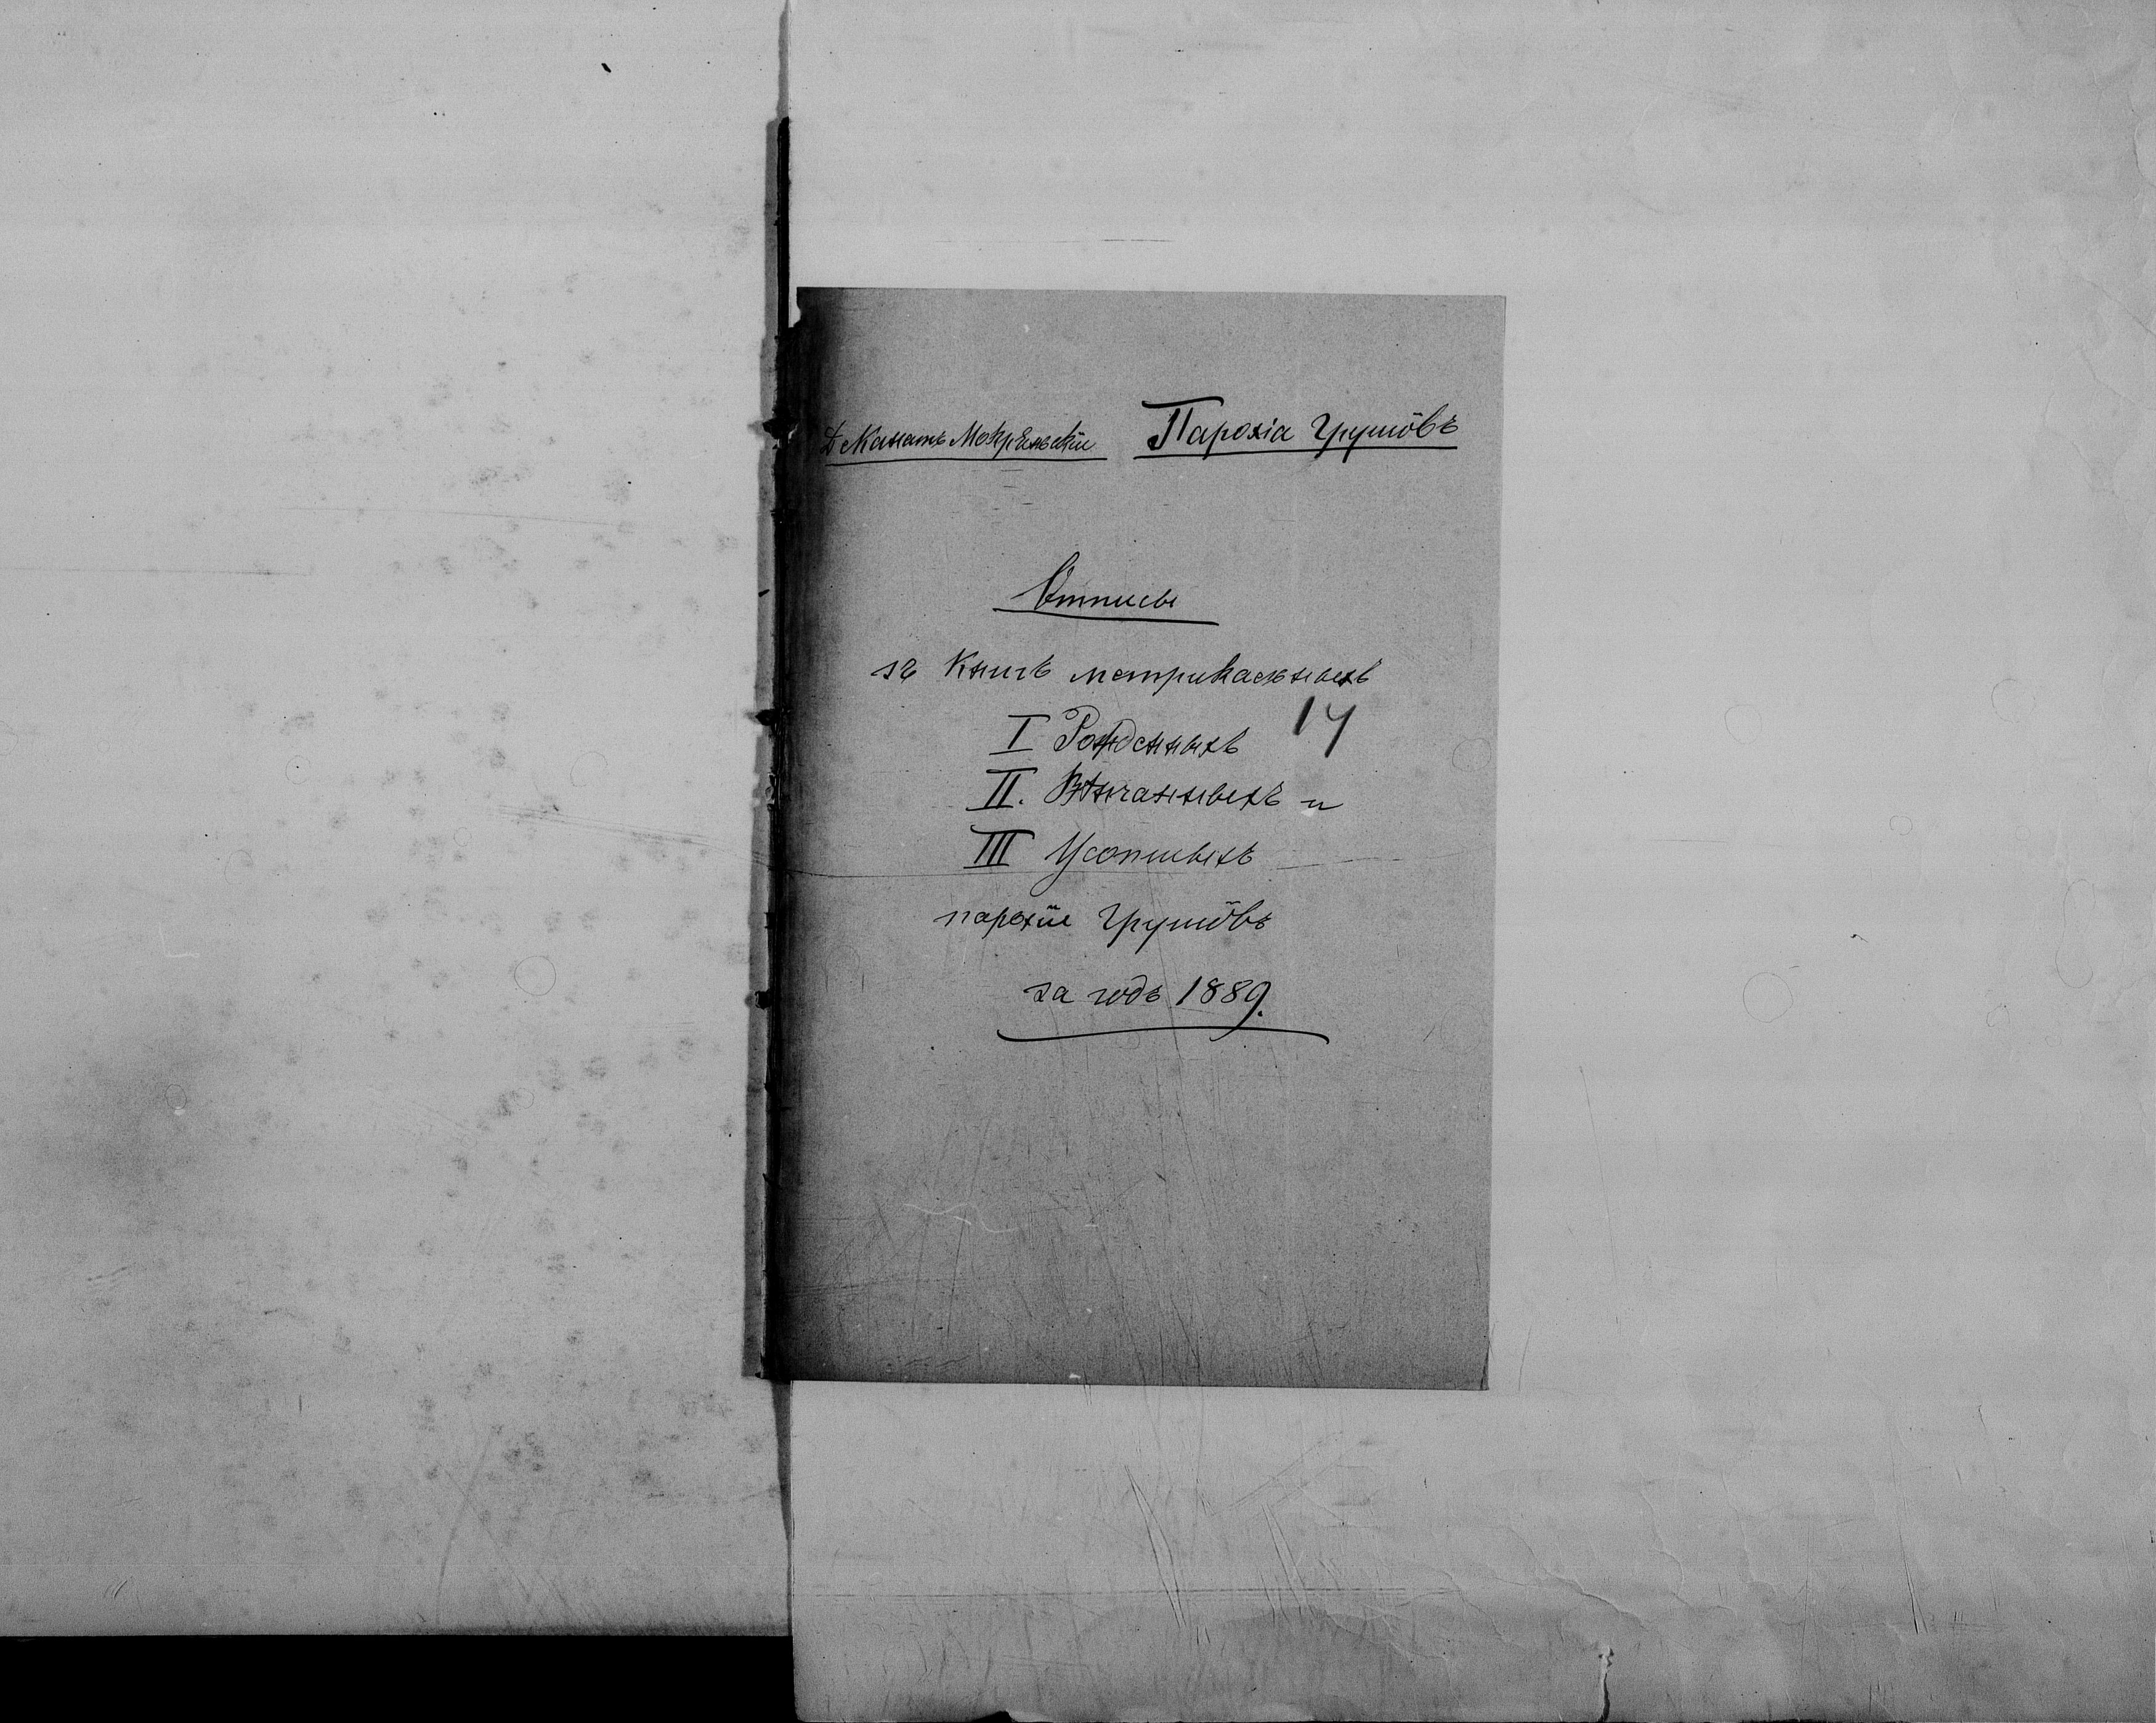 Деканатъ Мокрянскій Парохія Грушôвъ
Отписы
зъ Книгъ метрикальныхъ
I Рожденныхъ 14
II. Вѣнчанныхъ и
III Усопшыхъ
парохіи Грушôвъ
за годъ 1889.